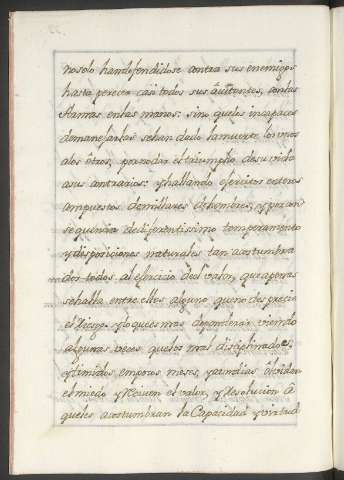 no solo han defendidose contra sus enemigos
hasta perecer casi todos sus auitantes, con las
Armas en las manos: sino que los incapaces
de manejarlas se han dado la muerte los unos
a los ôtros, por no dar el triumpho de su vida
a sus contrarios: y hallando ejercitos enteros
compuestos de millares de hombres, y por con
sequencia de diferentissimo temperamento
y disposiciones naturales tan acostumbra
dos todos al ejercicio del valor, que apenas
se halla entre ellos alguno que no desprecie
el Riesgo. y lo que es mas de ponderar viendo
algunas veces, que los mal disciplinados,
y timidos, en pocos meses, y aun dias ôlvidan
el miedo y Reciven el valor, y Resolucion â
que les acostumbran la Capacidad y virtud